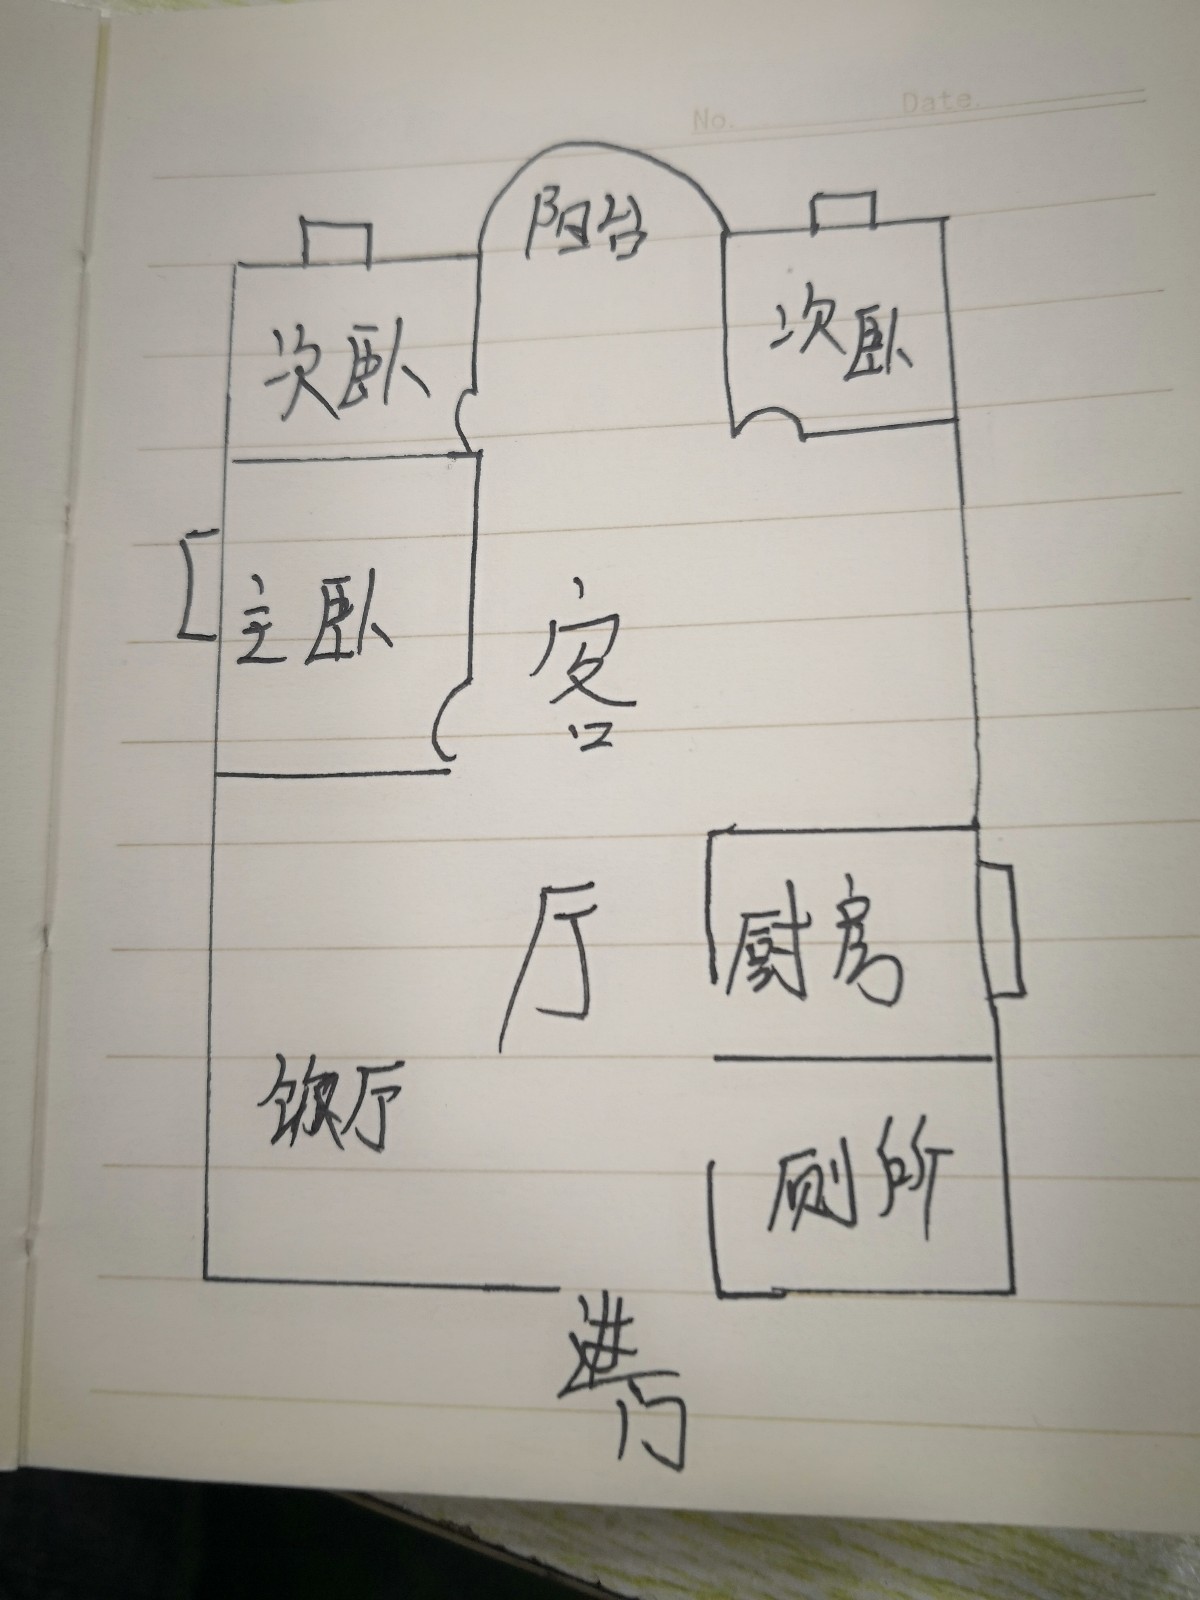 No.
Date.
阳台
次卧
次卧
主卧
客
厅
厨房
饭厅
厕所
进
门